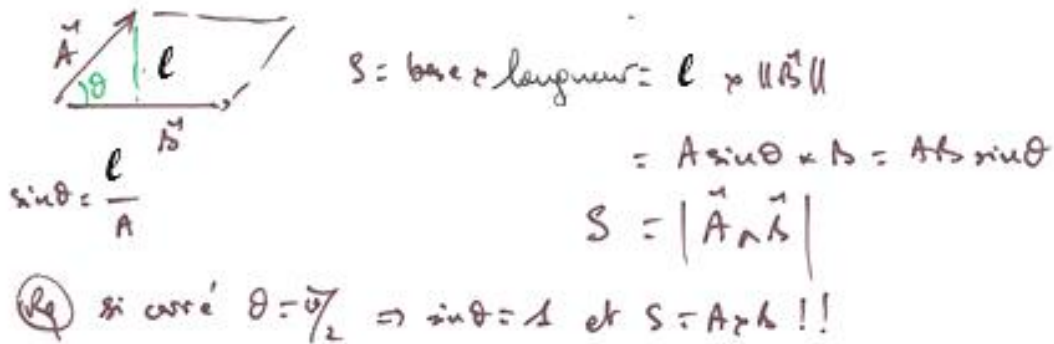 A⃗
θ
l
B⃗
S = base × longueur = l × ||B⃗||
= A sinθ × B = AB sinθ
sinθ = l/A
S = |A⃗ ∧ B⃗|
Rq si carré θ = π/2 ⇒ sinθ = 1 et S = A×B !!